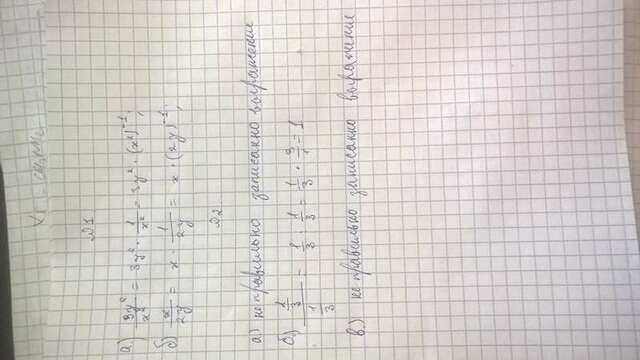 №1
а) 3y²/x² = 3y² · 1/x² = 3y² · (x²)⁻¹;
б) x/2y = x · 1/2y = x · (2y)⁻¹;
№2
а) неправильно записанно выражение
б) 1/3 / 1/3 = 1/3 : 1/3 = 1/3 · 3/1 = 1
в) неправильно записанно выражение